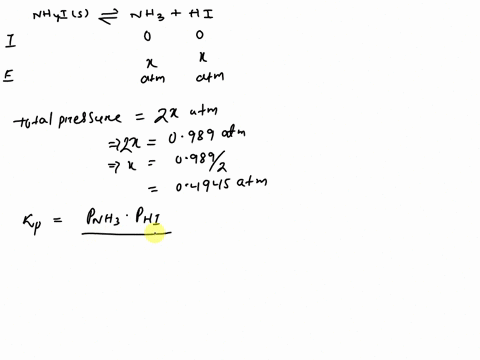 NH4I(s) ⇌ NH3 + HI
I 0 0
E x atm x atm
Total pressure = 2x atm
⇒ 2x = 0.989 atm
⇒ x = 0.989/2
= 0.4945 atm
Kp = PNH3 · PHI